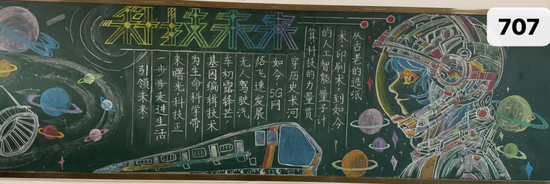 707
科技未来
从古老的造纸
术、印刷术，到如今
的人工智能、量子计
算，科技的力量贯
穿历史长河
如今，5G网
络飞速发展，
无人驾驶汽
车初露锋芒，
基因编辑技术
为生命科学带
来曙光，科技正
一步步走进生活
引领未来